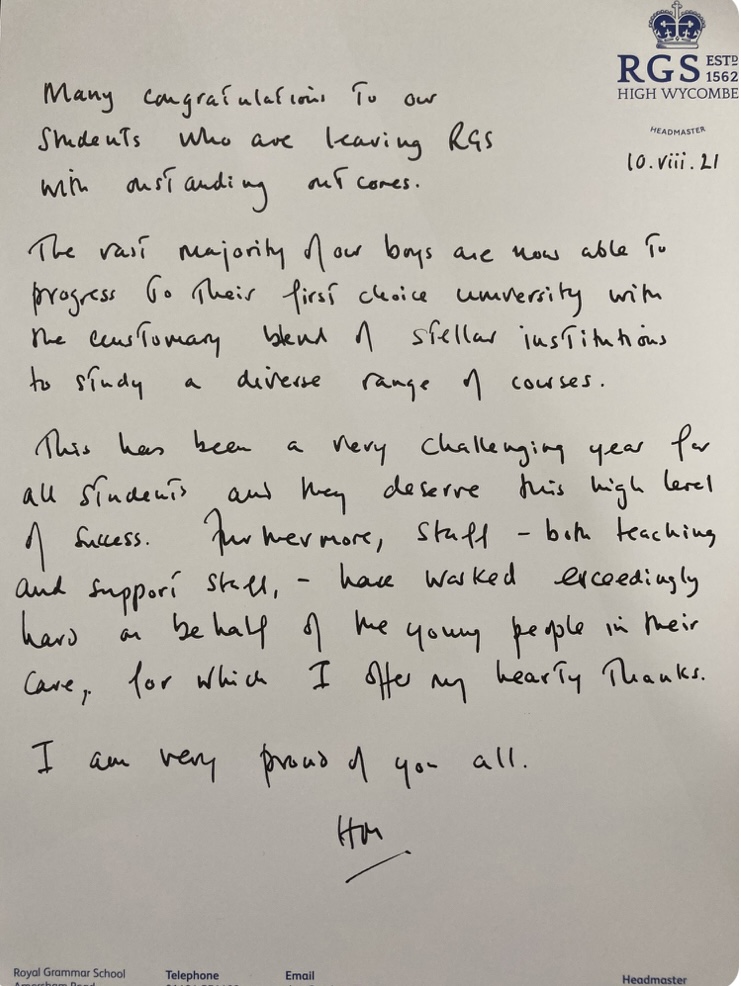 RGS ESTD 1562
HIGH WYCOMBE
HEADMASTER
10.viii.21
Many congratulations to our
students who are leaving RGS
with oustanding outcomes.
The vast majority of our boys are now able to
progress to their first choice university with
the customary blend of stellar institutions
to study a diverse range of courses.
This has been a very challenging year for
all students and they deserve this high level
of success. Furthermore, staff - both teaching
and support staff, - have worked exceedingly
hard on behalf of the young people in their
care, for which I offer my hearty thanks.
I am very proud of you all.
HM
Royal Grammar School Telephone Email Headmaster
Amersham Road